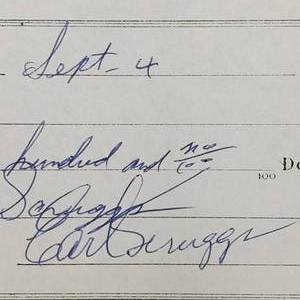 Sept - 4
hundred and no/100
100 Do
Scruggs
Earl Scruggs